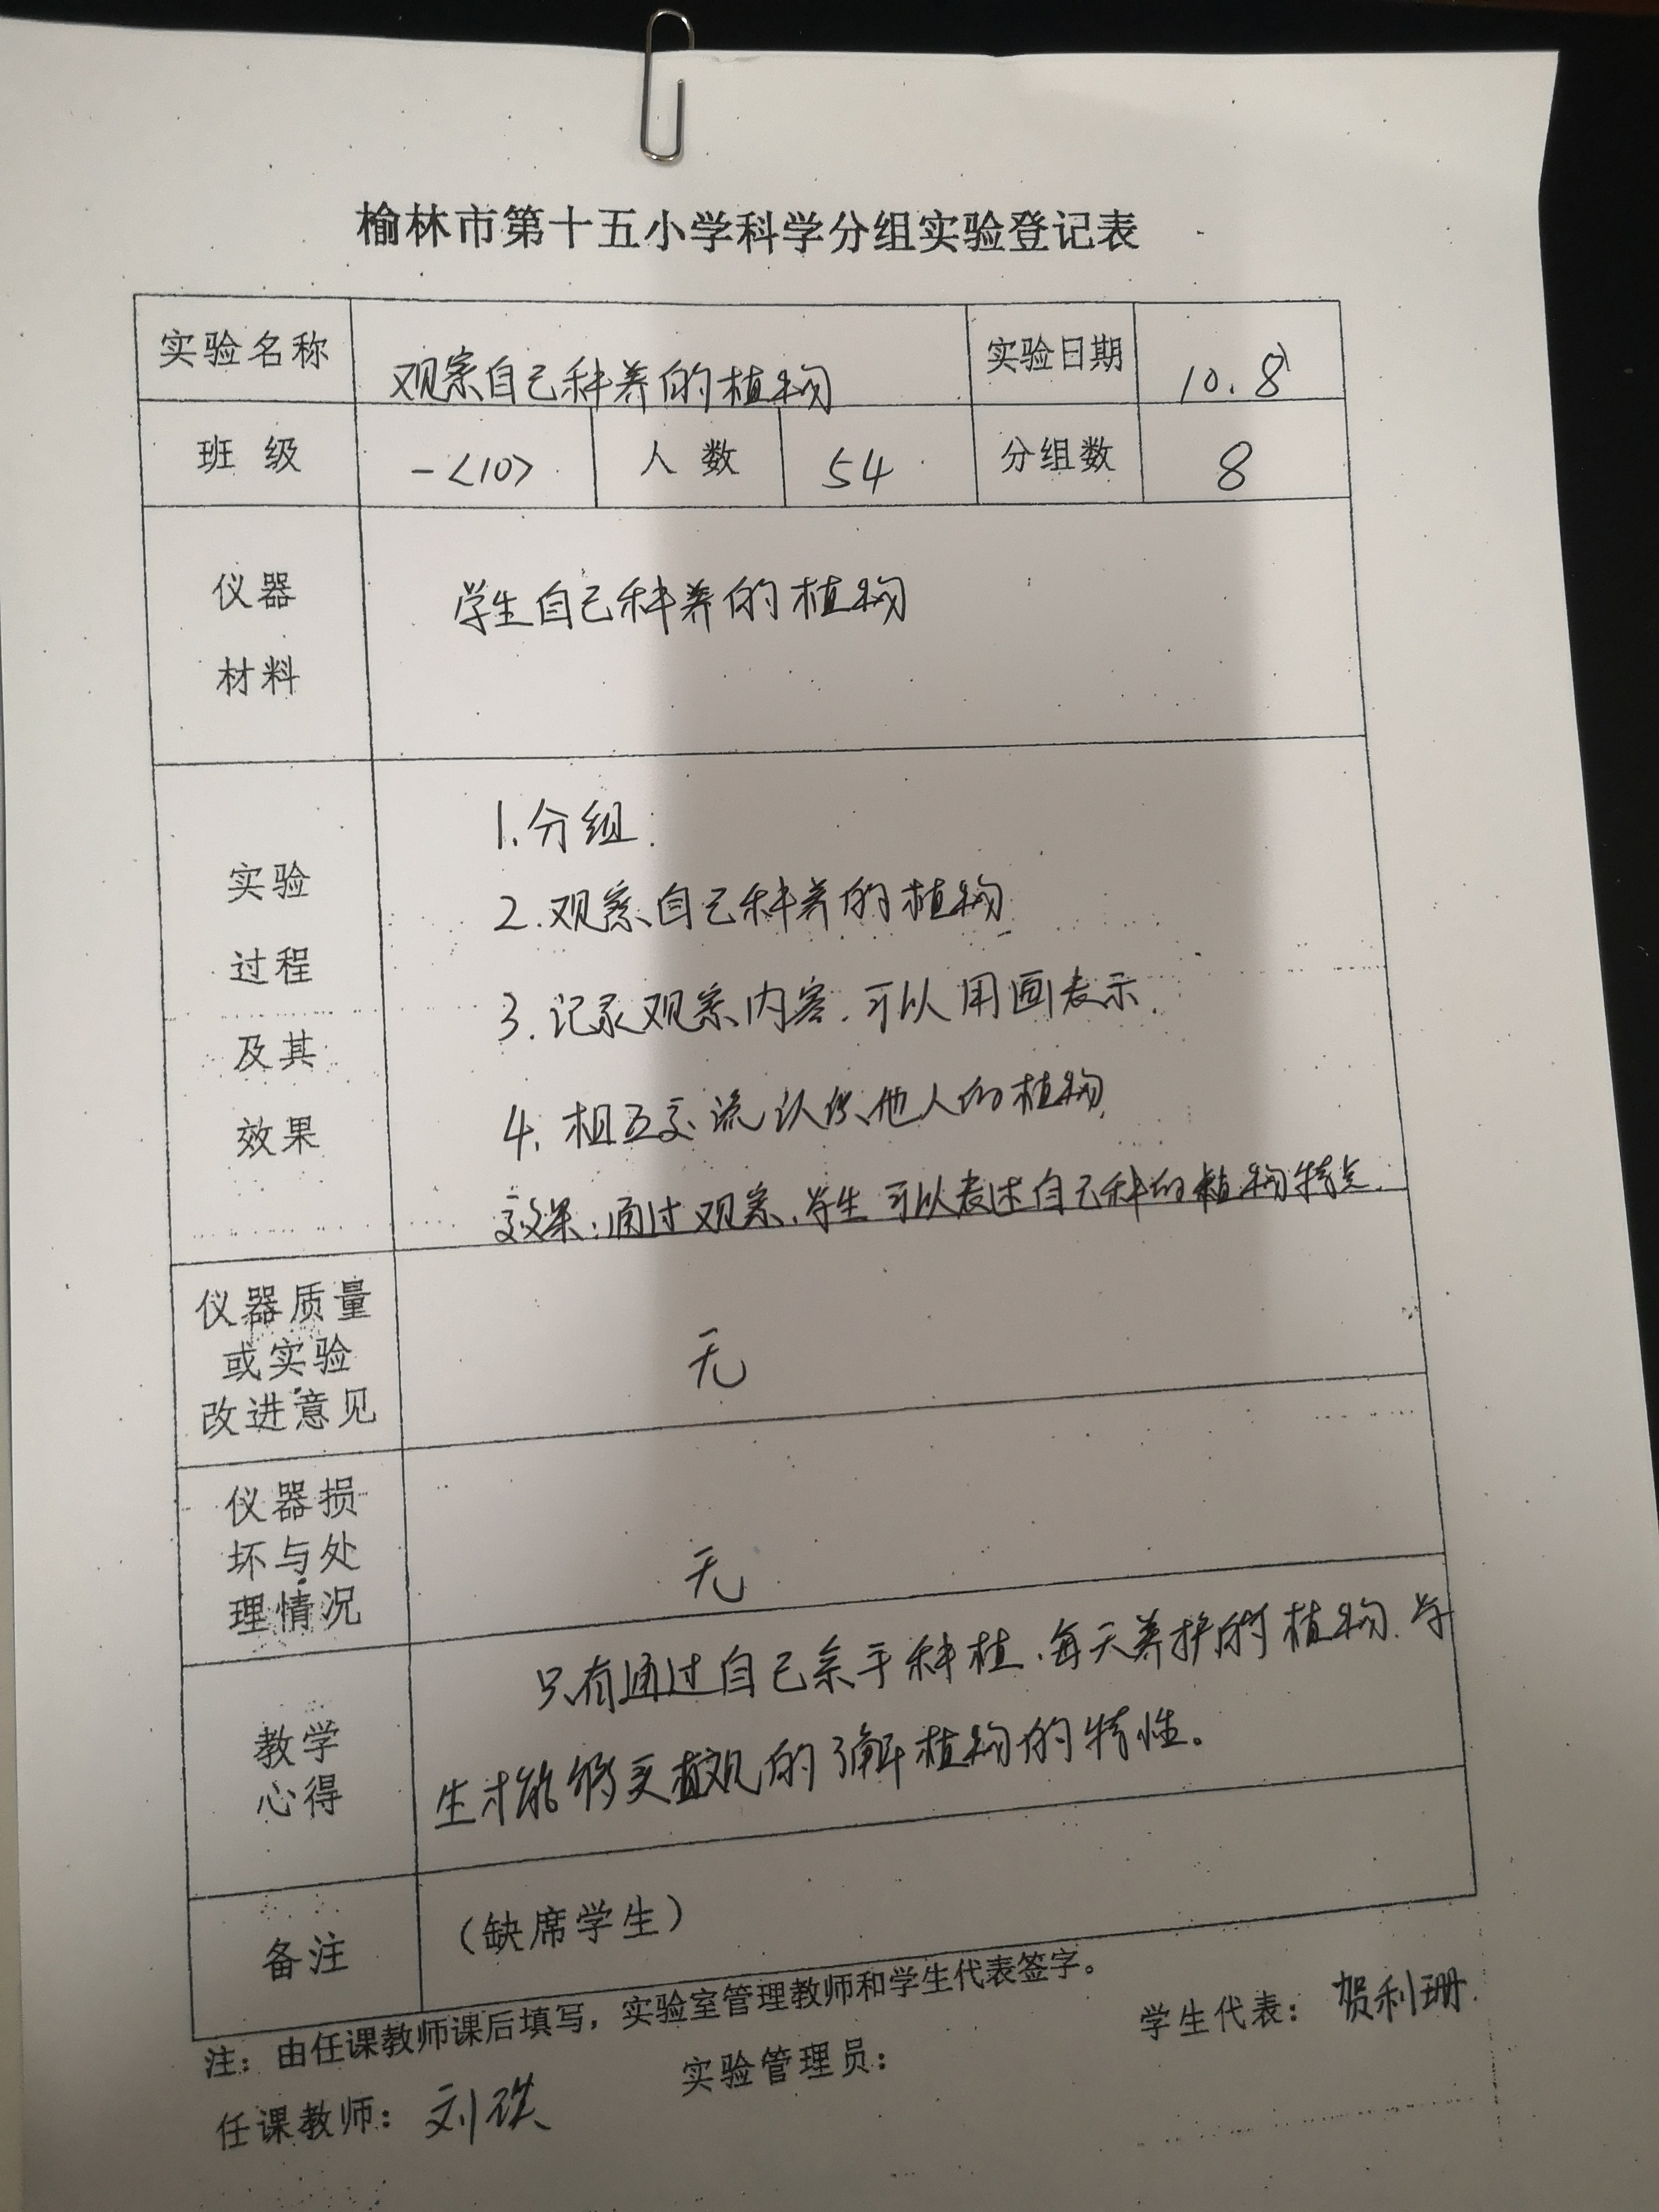 榆林市第十五小学科学分组实验登记表
实验名称 观察自己种养的植物 实验日期 10.8
班 级 一<10> 人 数 54 分组数 8
仪器
材料
学生自己种养的植物
实验
过程
及其
效果
1.分组.
2.观察自己种养的植物
3.记录观察内容.可以用画表示.
4.相互交流认识他人的植物
效果:通过观察,学生可以表述自己种的植物特点.
仪器质量
或实验
改进意见
无
仪器损
坏与处
理情况
无
教学
心得
只有通过自己亲手种植,每天养护的植物.学
生才能够更直观的了解植物的特性。
备注
(缺席学生)
注:由任课教师课后填写,实验室管理教师和学生代表签字。
任课教师: 刘 实验管理员: 学生代表: 贺利珊.